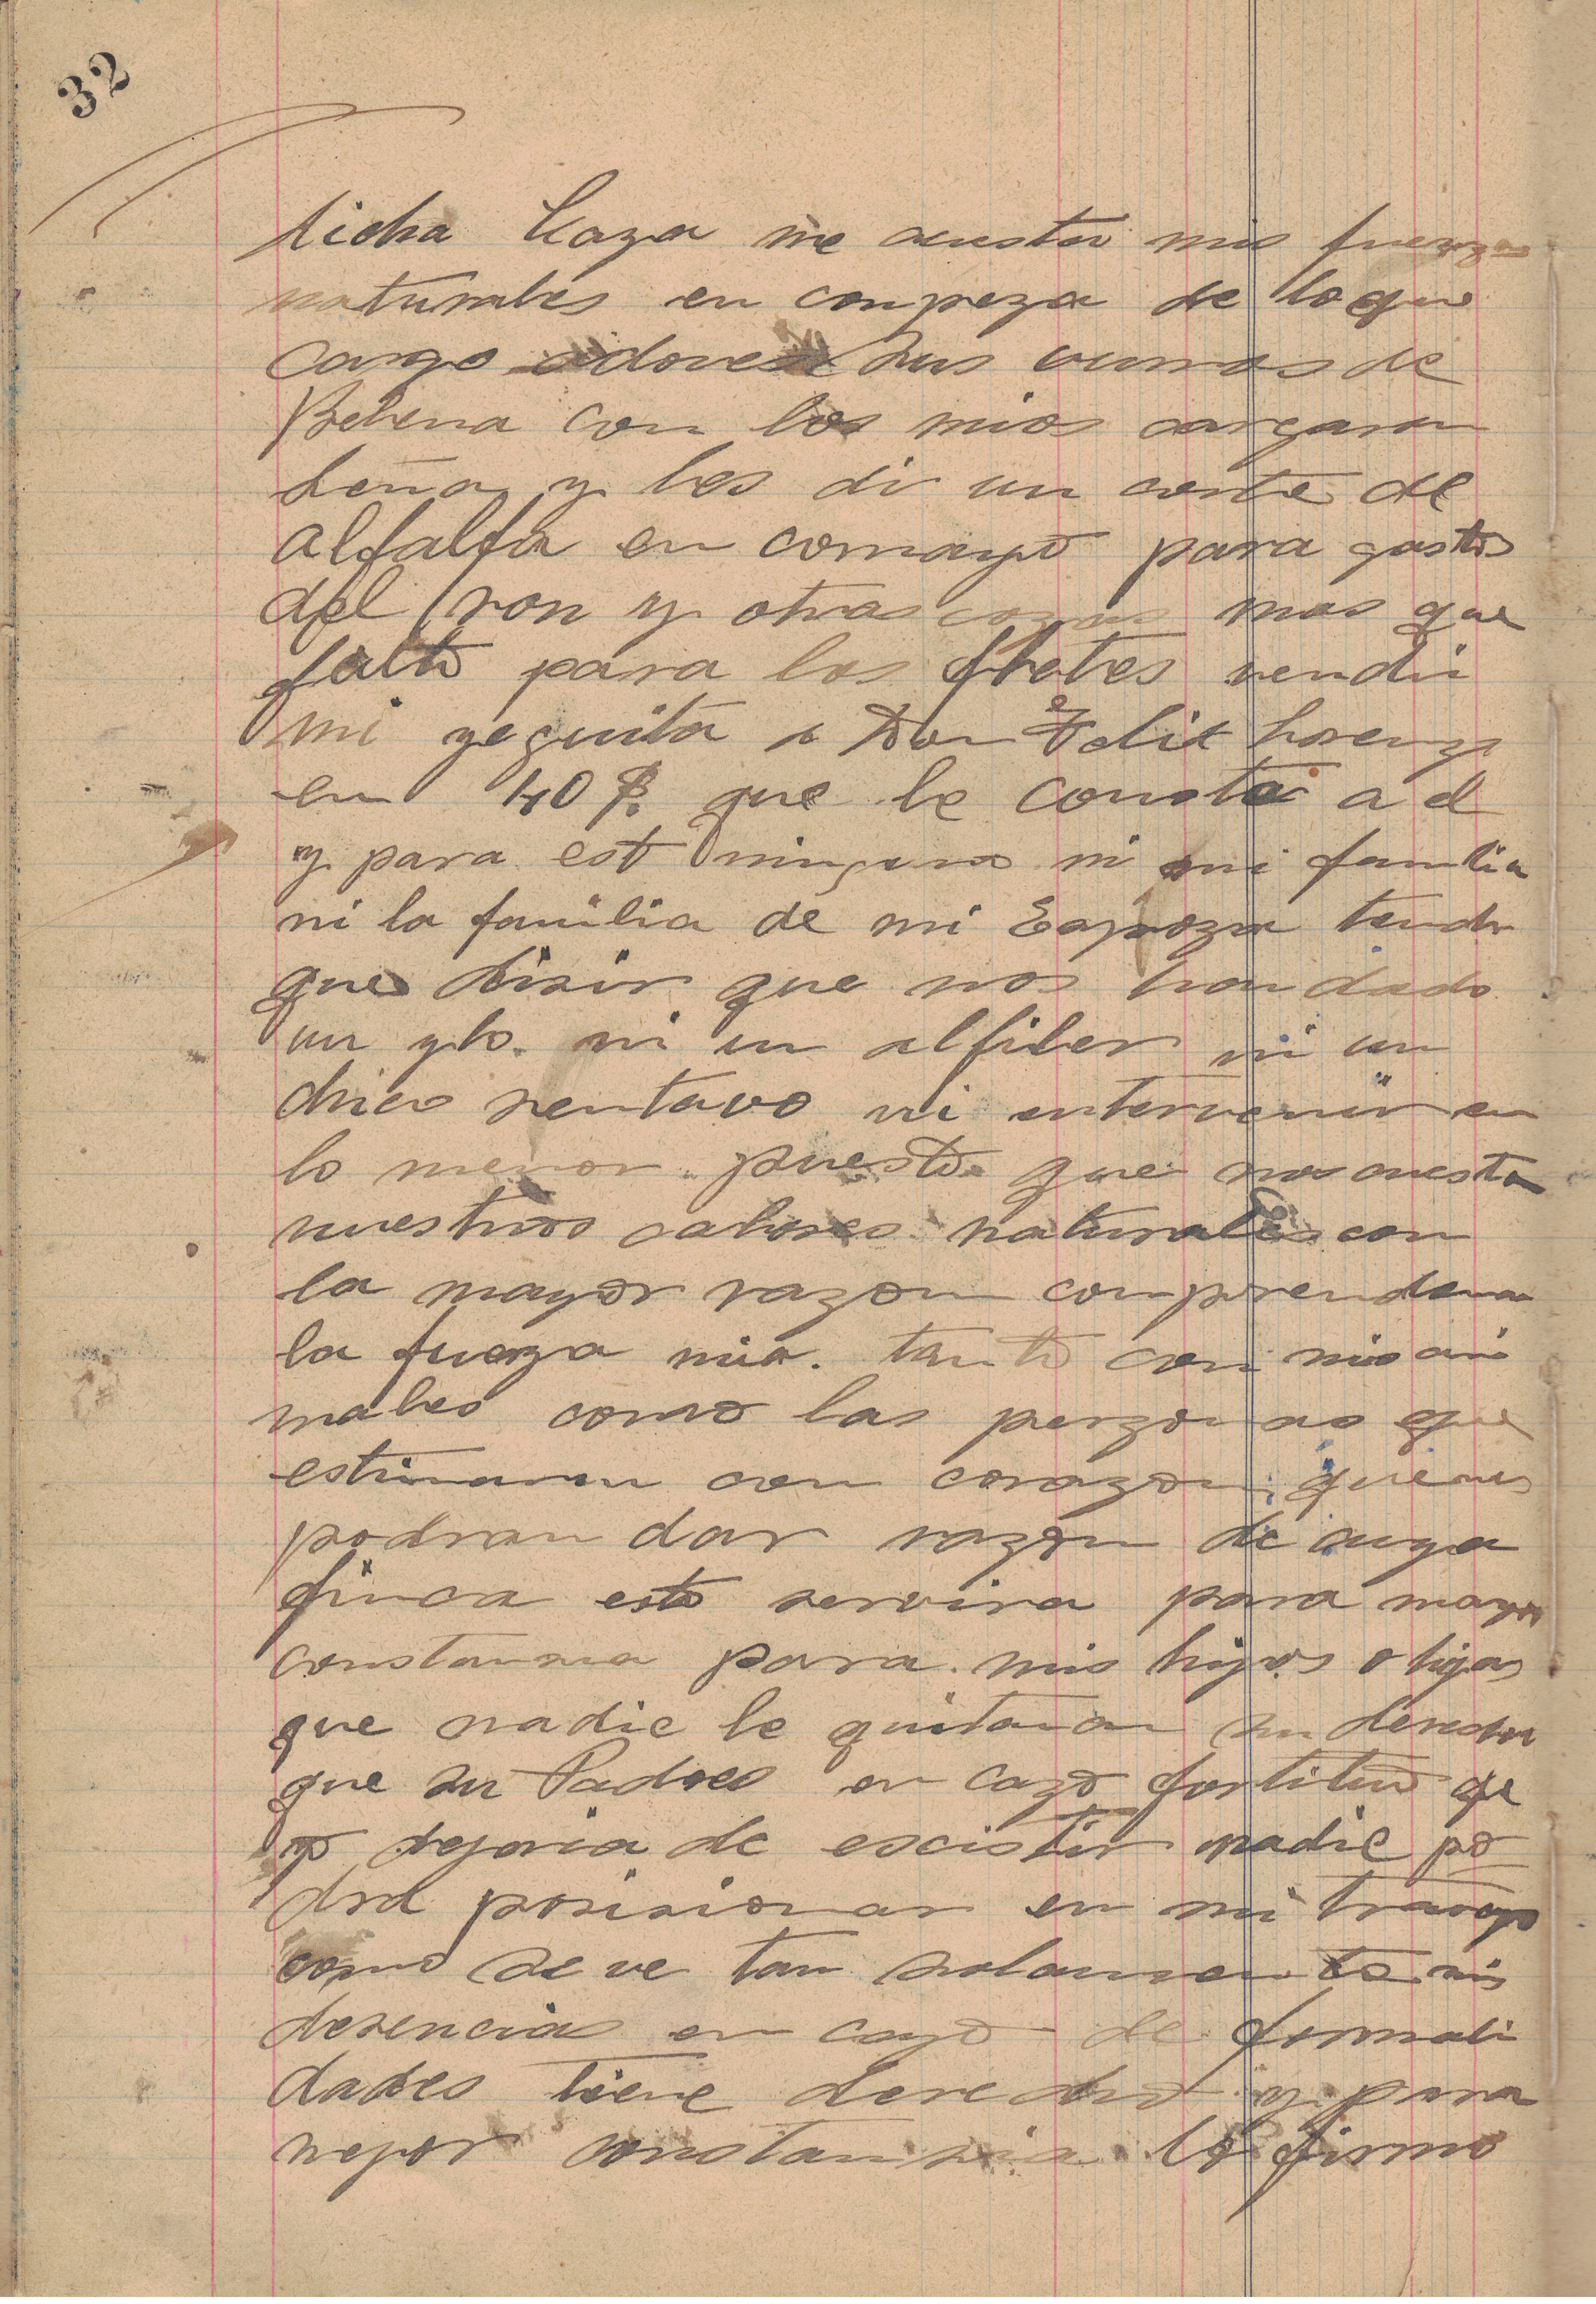 32
dicha Caza me acusta mis fuerzas
naturales en conpeza de lo que
cargo adoves sus vurros de
Belena con los mios cargaron
Leña y les di un corte de
alfalfa en comayo para gastos
del ron y otras cozas mas que
falto para los fletes vendi
mi yeguita a Don Felix Lorenzo
en 40 $. que le consta a el
y para est ninguno ni mi familia
ni la familia de mi Espoza tendra
que disir que nos han dado
un ylo. ni un alfiler ni un
chico sentavo ni intervenir en
lo menor puesto que nos cuesta
nuestros calores naturales con
la mayor razon comprenderan
la fuerza mia. tanto con mis ani
males como las perzonas que
estimaron con corazon, quienes
podran dar razon de cuya
finca esto servira para mayor
constansia para mis hijos o hijas
que nadie le quitaran su derecho
que su Padres en cazo fortituo qe
yo dejaria de escistir nadie po
dra posisionar en mi travajo
como se ve tan solamente mis
desencias en cazo de formali
dades tiene derecho y para
mejor constansia lo firmo